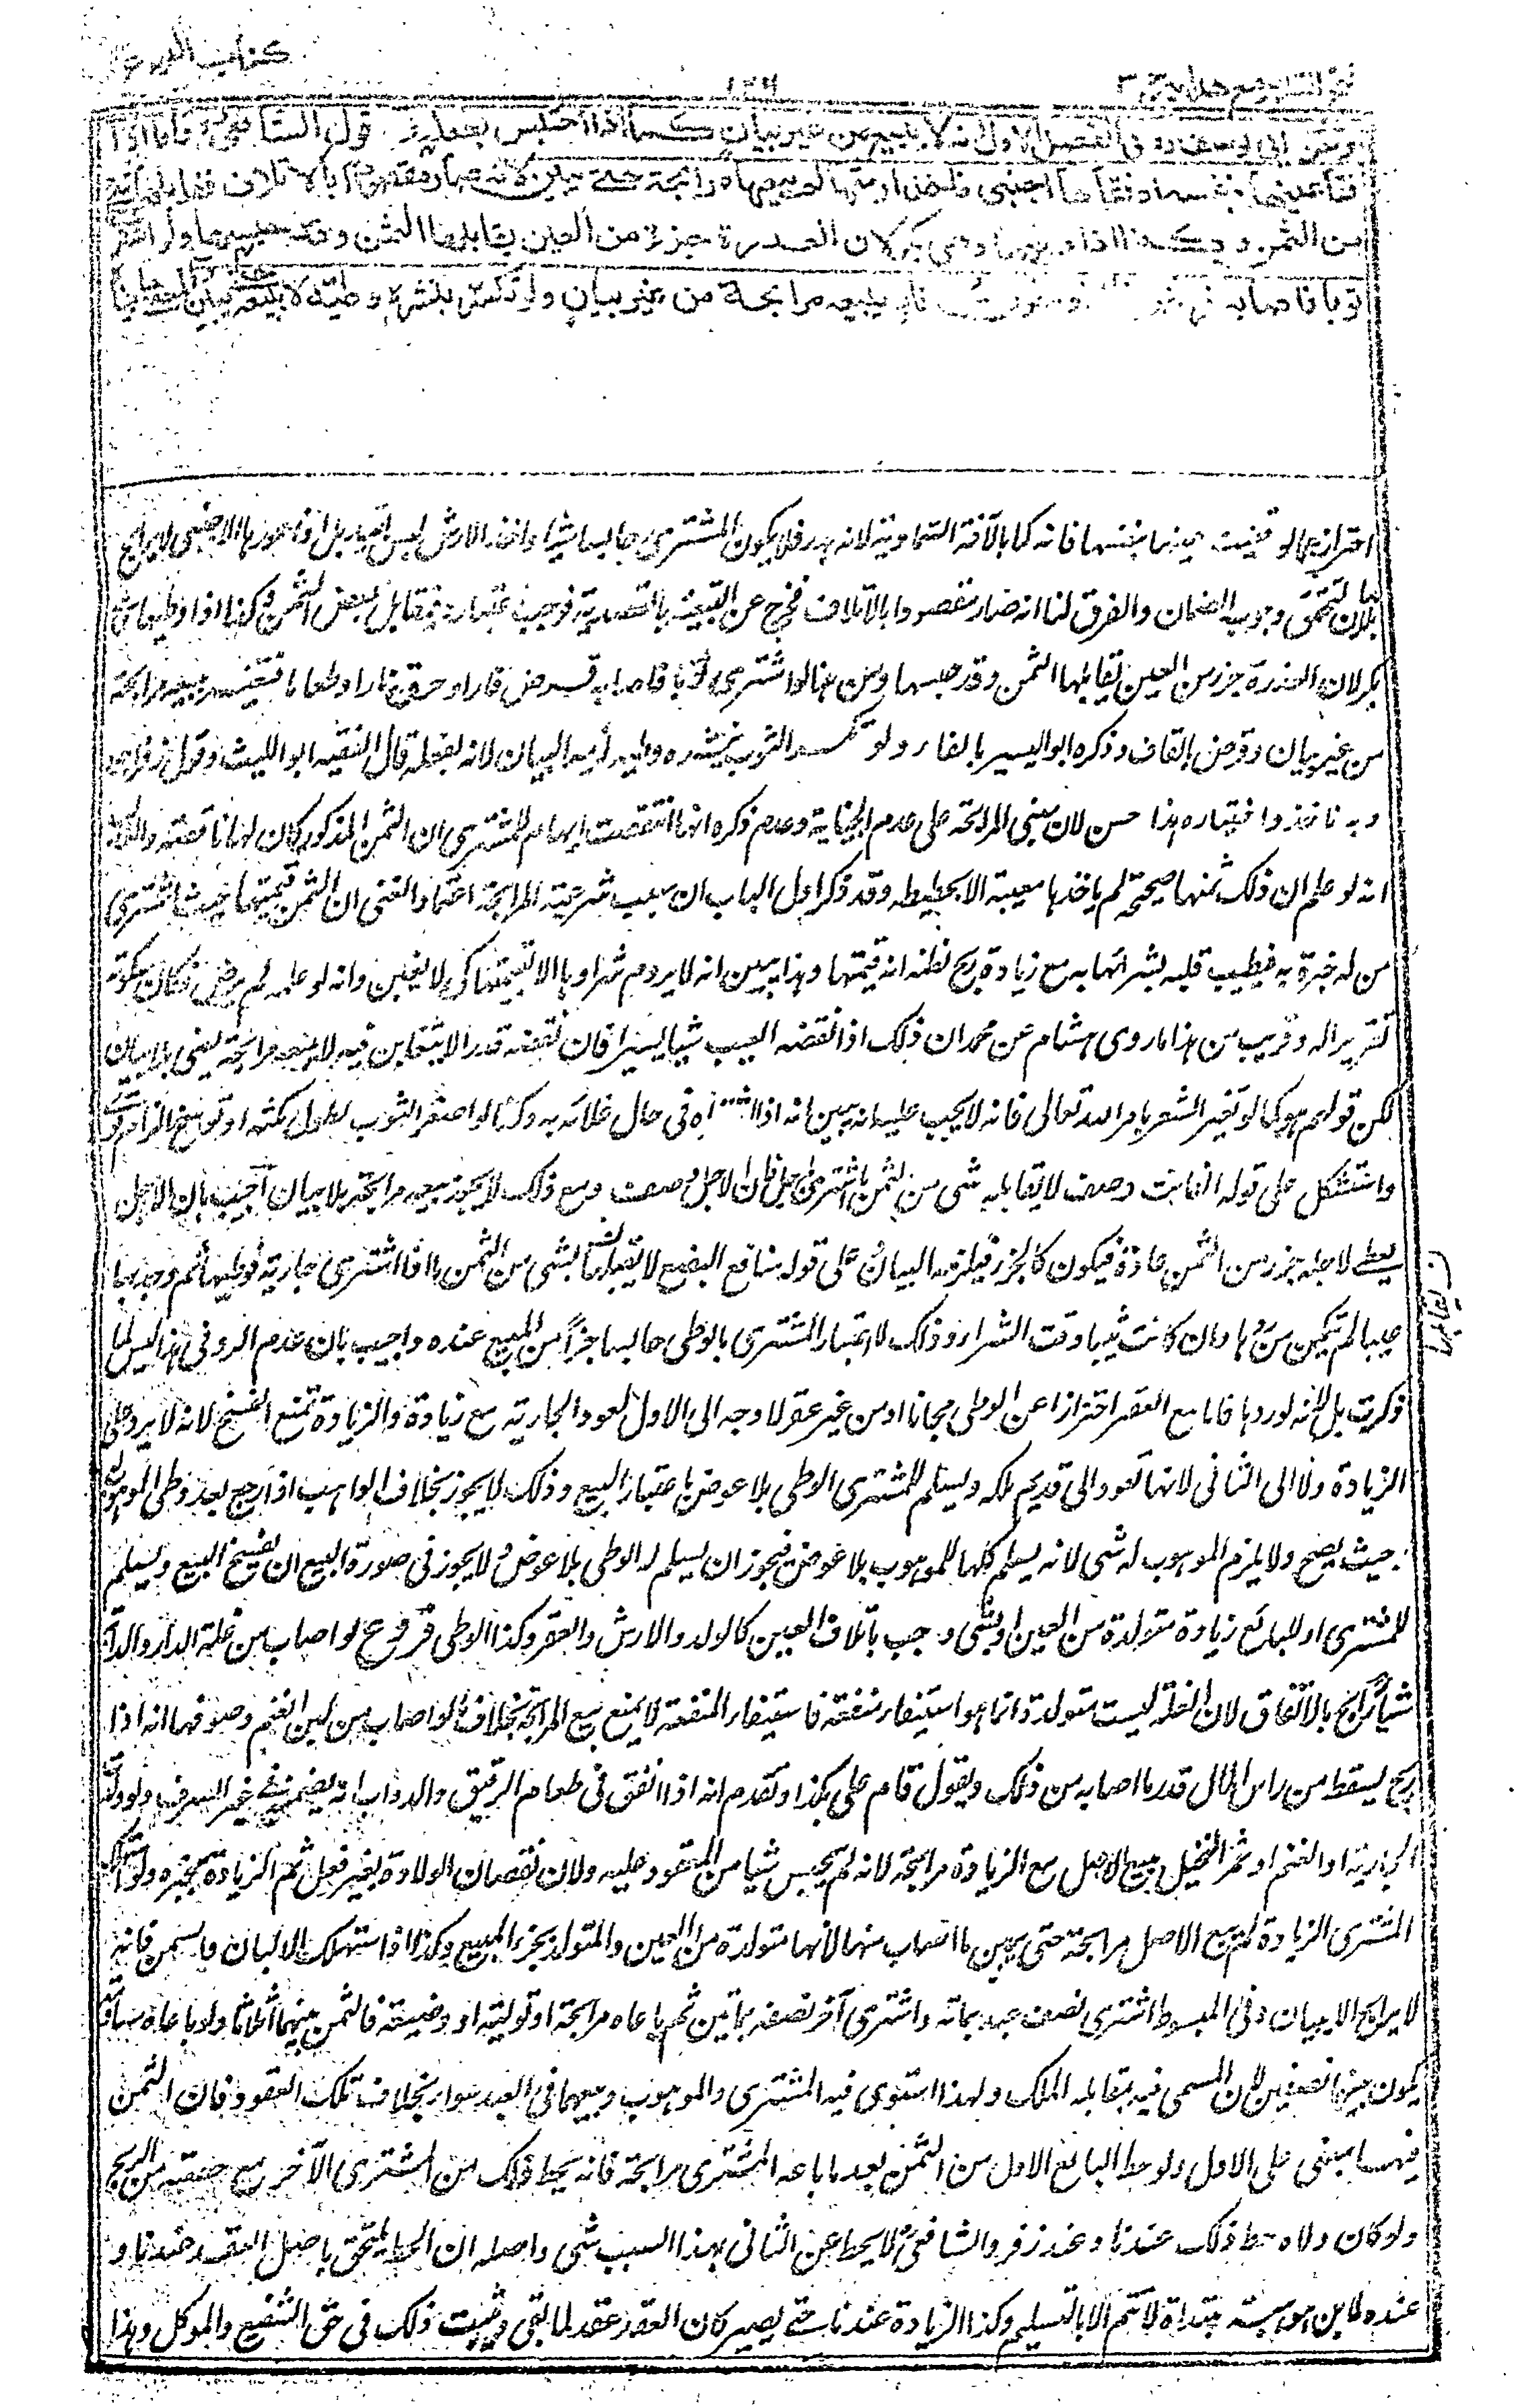 فتح القدير مع هداية ج ٣
١٢٦
كتاب البيوع
وعن ابي يوسف رح في الفصل الاول انه لا يبيع من غير بيان كما اذا احتبس بفعله وهو قول الشافعي رح فاما اذا
فقأ عينها بنفسه او فقأها اجنبي فاخذ ارشها لم يبيعها مرابحة حتى يبين لانه صار مقصودا بالاتلاف فيقابلها شئ
من الثمن وكذا اذا وطيها وهي بكر لان العذرة جزء من العين يقابلها الثمن وقد حبسها ولو اشترى
ثوبا فاصابه قرض فار او حرق نار يبيعه مرابحة من غير بيان ولو تكسر بنشره وطيه لا يبيعه حتى يبين والمعنى ما بينا
احتراز عما لو فقئت عينها بنفسها فانه كما بالآفة السماوية لانه هدر فلا يكون المشترى حابسا شيئا واخذ الارش ليس بقيد بل اذا عورها الاجنبى لا يرابح
بلا بيان لتحقق وجوب الضمان والفرق لنا انه صار مقصودا بالاتلاف فخرج عن التبعية بالقصدية فوجب اعتباره فيقابل ببعض الثمن وكذا اذا وطيها وهى
بكر لان العذرة جزء من العين يقابلها الثمن وقد حبسها ومن هنا لو اشترى ثوبا فاصابه قرض فار او حرق نار او طعاما فتغير يبيعه مرابحة
من غير بيان وقرض بالقاف وذكره ابو اليسير بالفاء ولو تكسر الثوب بنشره وطيه لزمه البيان لانه بفعله قال الفقيه ابو الليث وقول زفر اجود
وبه ناخذ واختياره هذا حسن لان مبنى المرابحة على عدم الخيانة وعدم ذكره انها انتقصت ايهام للمشترى ان الثمن المذكور كان لها ناقصة والغالب
انه لو علم ان ذلك ثمنها صحيحة لم ياخذها معيبة الا بحطيطه وقد ذكر اول الباب ان سبب شرعية المرابحة اعتماد الغنى ان الثمن قيمتها حيث اشترى
من له خبرة به فيطيب قلبه بشرائها به مع زيادة ربح لظنه انه قيمتها وهذا يبين انه لا يروم شراؤها الا بقيمتها كى لا يغبن وانه لو علمه لم يرض فكان سكوته
تغريرا له وقريب من هذا ما روى هشام عن محمد ان ذلك اذا نقصه العيب شيئا يسيرا فان نقصه قدر لا يتغابن فيه لا يبيعه مرابحة يعنى بلا بيان
لكن قولهم هو كما لو تغير السعر بامر الله تعالى فانه لا يجب عليه ان يبين انه اذا اشتراه فى حال غلائه به وكذا لو اصفر الثوب لطول مكثه او توسخ
واستشكل على قوله الفائت وصف لا يقابله شى من الثمن ما اشترى باجل فان الاجل وصف ومع ذلك لا يجوز بيعه مرابحة بلا بيان اجيب بان الاجل
يعطى لاجله جزء من الثمن عادة فيكون كالجزء فيلزمه البيان وعلى قوله منافع البضع لا يقابلها شى من الثمن ما اذا اشترى جارية فوطيها ثم وجد بها
عيبا لم يتمكن من ردها وان كانت ثيبا وقت الشراء وذلك لاعتبار المشترى بالوطى حابسا جزأ من المبيع عنده واجيب بان عدم الرد فى هذا ليس لما
ذكرت بل لانه لو ردها فاما مع العقر احترازا عن الوطى مجانا او من غير عقر لا وجه الى الاول لعود الجارية مع زيادة والزيادة تمنع الفسخ لانه لا يرد على
الزيادة ولا الى الثانى لانها تعود الى قديم ملكه ويسلم للمشترى الوطى بلا عوض باعتبار البيع وذلك لا يجوز بخلاف الواهب اذا رجع بعد وطى الموهوب له
حيث يصح ولا يلزم الموهوب له شى لانه يسلم كلها للموهوب بلا عوض فيجوز ان يسلم له الوطى بلا عوض ولا يجوز فى صورة البيع ان يفسخ البيع ويسلم
للمشترى او للبائع زيادة متولدة من العين او شى وجب باتلاف العين كالولد والارش والعقر وكذا الوطى فروع لو اصاب من غلة الدار والدابة
شيأ يرابح بالاتفاق لان الغلة ليست متولدة انما هو استيفاء منفعة فاستيفاء المنفعة لا يمنع بيع المرابحة بخلاف ما لو اصاب من لبن الغنم وصوفها انه اذا
رابح يسقط من راس المال قدر ما اصابه من ذلك ويقول قام على بكذا وتقدم انه اذا انفق فى طعام الرقيق والدواب انه يضم فى غير السرف ولو ولدت
الجارية او الغنم او ثمر النخيل يبيع الاصل مع الزيادة مرابحة لانه لم يحبس شيا من المعقود عليه ولان نقصان الولادة بغير فعل ثم الزيادة تجبره ولو استهلك
المشترى الزيادة لم يبع الاصل مرابحة حتى يبين ما اصاب منها لانها متولدة من العين والمتولد بجزء المبيع وكذا اذا استهلك الالبان والسمن فانه
لا يرابح الا ببيان وفى المبسوط اشترى نصف عبد بمائة واشترى آخر نصفه بمائتين ثم باعاه مرابحة او تولية او وضيعة فالثمن بينهما اثلاثا ولو باعاه مساومة
يكون بينهما نصفين لان المسمى فيه بمقابلة الملك ولهذا استوى فيه المشترى والموهوب وبيعهما فى العبد سواء بخلاف تلك العقود فان الثمن
فيها مبنى على الاول ولو حط البائع الاول من الثمن بعد ما باعه المشترى مرابحة فانه يحط ذلك من المشترى الآخر مع حصته من الربح
ولو كان ولاه حط ذلك عندنا وعند زفر والشافعى لا يحط عن الثانى بهذا السبب شى واصله ان الحط يلتحق باصل العقد عندنا و
عنده لا بل هو هبة مبتداة لا تتم الا بالتسليم وكذا الزيادة عندنا حتى يصير كان العقد عقد لما بقى ويثبت ذلك فى حق الشفيع والموكل وهذا